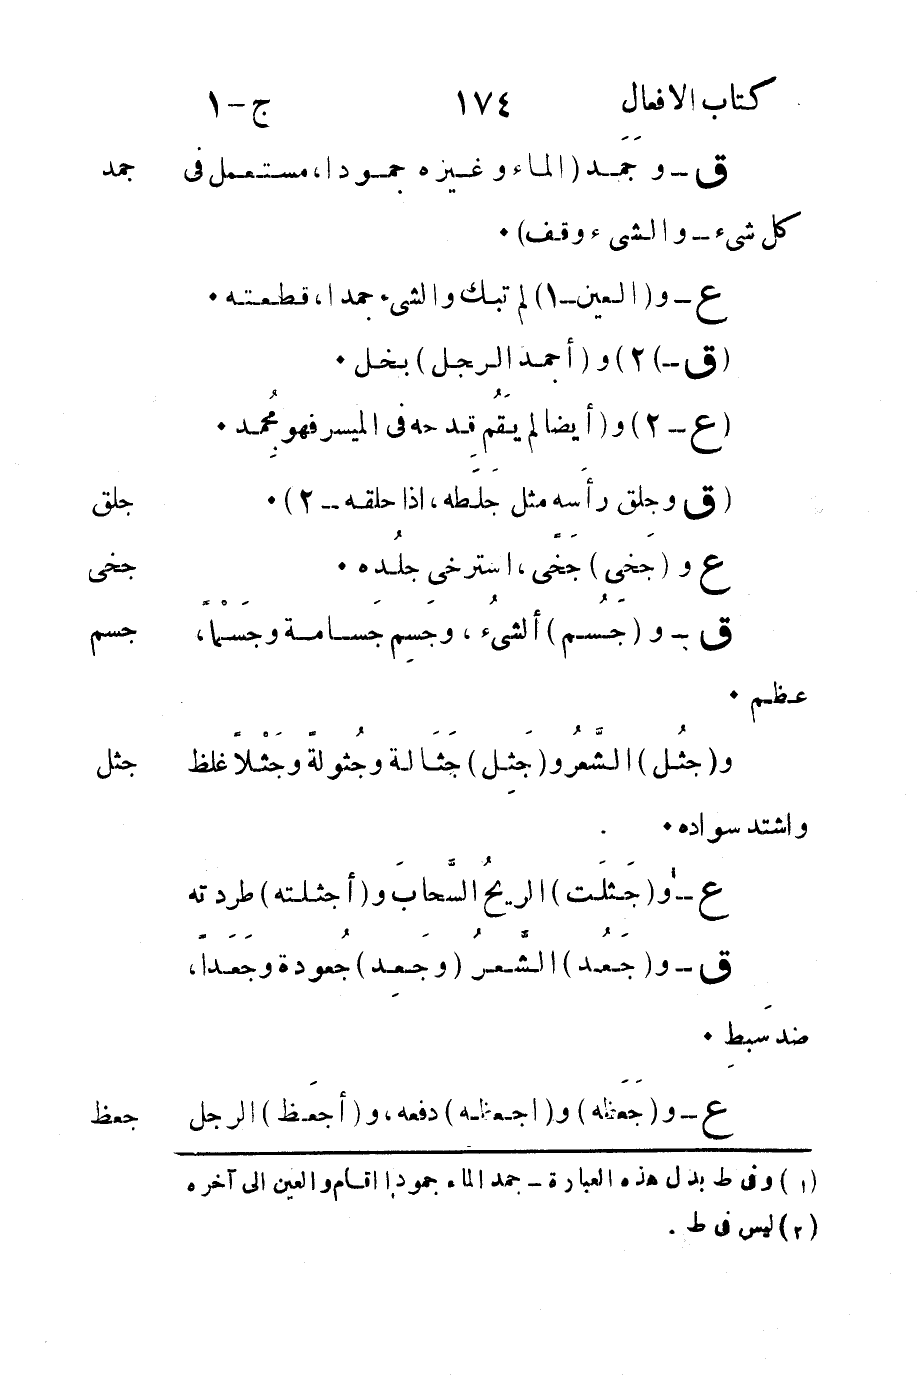 كتاب الافعال ١٧٤ ج-١
ق - و جَمَد (الماء و غيره جمودا، مستعمل فى جمد
كل شىء - والشىء وقف) ٠
ع - و (العين-١) لم تبك والشىء جمدا، قطعته ٠
(ق -) ٢) و (أجمد الرجل) بخل ٠
(ع - ٢) و (أيضا لم يَقُم قِدحه فى الميسر فهو مُجمِد ٠
(ق و جلق رأسه مثل جَلَطه، اذا حلقه - ٢) ٠ جلق
ع و (جَخى) جَخَّى، استرخى جلُده ٠ جخى
ق - و (جَسُم) ألشىءُ، وجَسِم جَسامة وجَسْماً، جسم
عظم ٠
و (جثُل) الشَّعرُ و (جَثِل) جَثَالة وجُثولةً وجَثْلاً غلظ جثل
واشتد سواده ٠
ع - و (جَثلَت) الريحُ السَّحابَ و (أجثلته) طردته
ق - و (جَعُد) الشَّعرُ (وجَعِد) جُعودة وجَعَداً،
ضد سَبِط ٠
ع - و (جَعَظه) و (اجعظه) دفعه، و (أجعَظ) الرجل جعظ
(١) وفى ط بدل هذه العبارة - جمد الماء جمودا اقام والعين الى آخره
(٢) ليس فى ط .